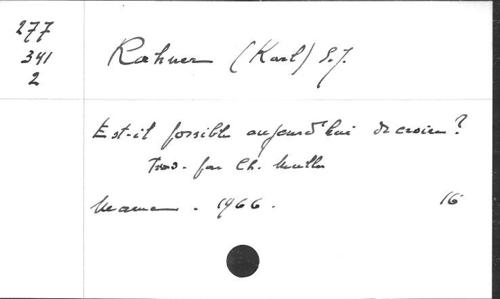 277
341
2
Rahner (Karl) S.J.
Est-il possible aujourd'hui de croire?
Trad. par Ch. Muller
Mame. 1966. 16